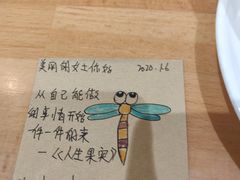 美丽的女士你好 2020.1.6
从自己能做
的事情开始
一件一件的来
—《人生果实》